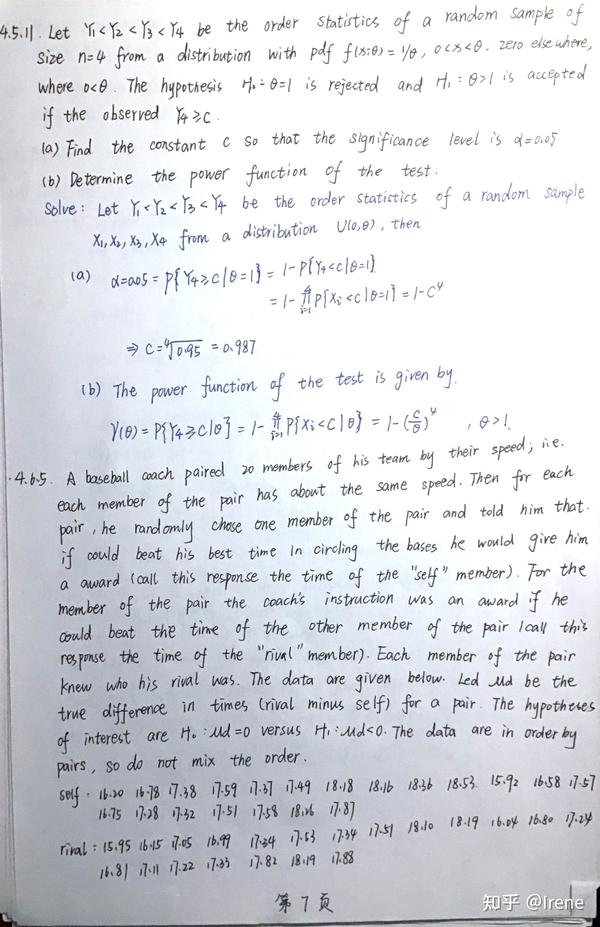 4.5.11. Let Y₁<Y₂<Y₃<Y₄ be the order statistics of a random sample of
size n=4 from a distribution with pdf f(x;θ)=1/θ, 0<x<θ. zero elsewhere,
where 0<θ. The hypothesis H₀:θ=1 is rejected and H₁:θ>1 is accepted
if the observed Y₄≥c.
(a) Find the constant c so that the significance level is α=0.05
(b) Determine the power function of the test.
Solve: Let Y₁<Y₂<Y₃<Y₄ be the order statistics of a random sample
X₁,X₂,X₃,X₄ from a distribution U(0,θ), then
(a) α=0.05=P{Y₄≥c|θ=1}=1-P{Y₄<c|θ=1}
=1-∏⁴ᵢ₌₁P{Xᵢ<c|θ=1}=1-C⁴
⇒ C=⁴√0.95=0.987
(b) The power function of the test is given by.
γ(θ)=P{Y₄≥c|θ}=1-∏⁴ᵢ₌₁P{Xᵢ<c|θ}=1-(c/θ)⁴, θ>1.
4.6.5. A baseball coach paired 20 members of his team by their speed; i.e.
each member of the pair has about the same speed. Then for each
pair, he randomly chose one member of the pair and told him that.
if could beat his best time in circling the bases he would give him
a award (call this response the time of the "self" member). For the
member of the pair the coach's instruction was an award if he
could beat the time of the other member of the pair (call this
response the time of the "rival" member). Each member of the pair
knew who his rival was. The data are given below. Led μd be the
true difference in times (rival minus self) for a pair. The hypotheses
of interest are H₀:μd=0 versus H₁:μd<0. The data are in order by
pairs, so do not mix the order.
self: 16.20 16.78 17.38 17.59 17.37 17.49 18.18 18.16 18.36 18.53. 15.92 16.58 17.57
16.75 17.28 17.32 17.51 17.58 18.26 17.87
rival: 15.95 16.15 17.05 16.99 17.34 17.53 17.34 17.51 18.10 18.19 16.04 16.80 17.24
16.81 17.11 17.22 17.33 17.82 18.19 17.88
第 7 页
知乎 @Irene